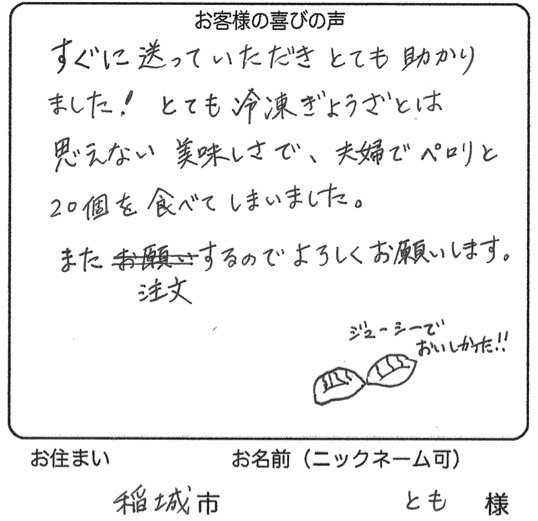 お客様の喜びの声
すぐに送っていただきとても助かり
ました！とても冷凍ぎょうざとは
思えない美味しさで、夫婦でペロリと
20個を食べてしまいました。
またお願いするのでよろしくお願いします。
注文
ジューシーで
おいしかった!!
お住まい お名前（ニックネーム可）
稲城市 とも 様